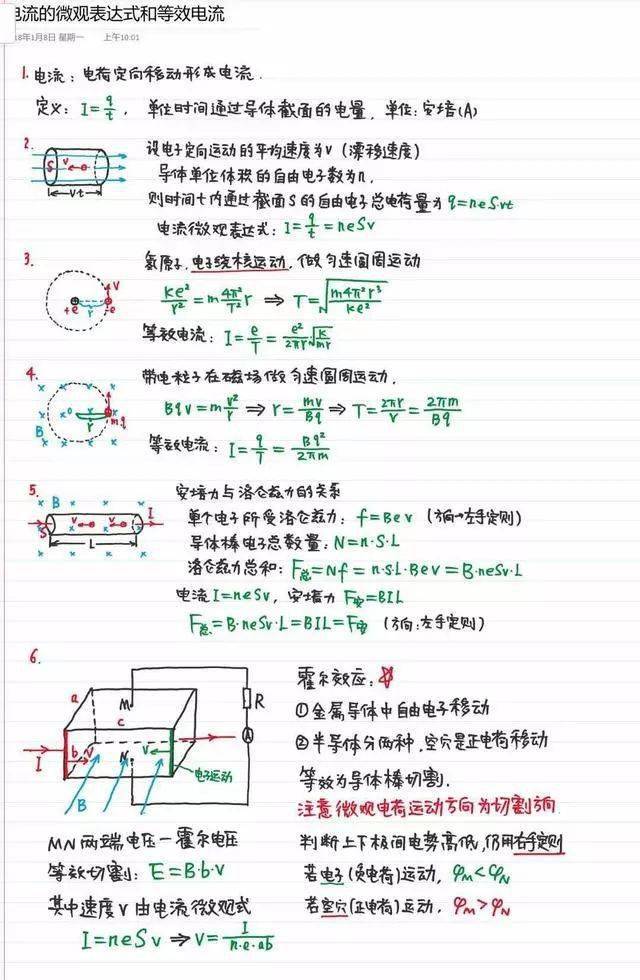 电流的微观表达式和等效电流
18年1月8日 星期一 上午10:01
1. 电流：电荷定向移动形成电流.
定义：I=q/t， 单位时间通过导体截面的电量，单位：安培(A)
2.
S
v
vt
设电子定向运动的平均速度为v（漂移速度）
导体单位体积的自由电子数为n.
则时间t内通过截面S的自由电子总电荷量为 q=neSvt
电流微观表达式：I=q/t=neSv
3.
v
+e
r
-e
氢原子,电子绕核运动,做匀速圆周运动
ke²/r²=m4π²/T² r ⇒ T=√(m4π²r³/ke²)
等效电流：I=e/T=e²/2πr √(k/mr)
4.
B
o
r
m q
带电粒子在磁场做匀速圆周运动.
Bqv=mv²/r ⇒ r=mv/Bq ⇒ T=2πr/v=2πm/Bq
等效电流：I=q/T=Bq²/2πm
5.
B
v
v
I
S
L
安培力与洛仑兹力的关系
单个电子所受洛仑兹力：f=Bev（方向→左手定则）
导体棒电子总数量：N=n·S·L
洛仑兹力总和：F总=Nf=n·S·L·Bev=B·neSv·L
电流I=neSv，安培力 F安=BIL
F总=B·neSv·L=BIL=F安（方向：左手定则）
6.
a
M
c
R
A
I
b
v
N
v
B
电子运动
霍尔效应：
①金属导体中自由电子移动
②半导体分两种,空穴是正电荷移动
等效为导体棒切割.
注意微观电荷运动方向为切割方向
MN两端电压—霍尔电压
等效切割：E=B·b·v
其中速度v由电流微观式
I=neSv ⇒ v=I/n·e·ab
判断上下极间电势高低,仍用右手定则
若电子(负电荷)运动，φM<φN
若空穴(正电荷)运动，φM>φN